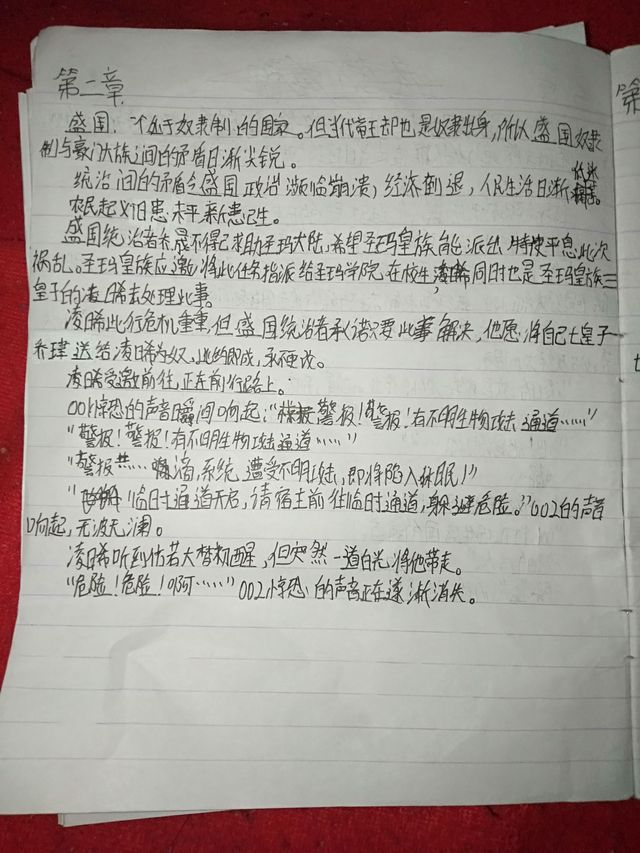 第二章
盛国:一个处于奴隶制的国家。但当代帝王却也是奴隶出身,所以盛国奴隶
制与豪门大族之间的矛盾日渐尖锐。
统治间的矛盾令盛国政治濒临崩溃,经济倒退,人民生活日渐
农民起义旧患未平新患已生。
盛国统治者不得已求助圣玛大陆,希望圣玛皇族能派出特使平息此次
祸乱。圣玛皇族应邀,将此任务指派给圣玛学院在校生,凌晞同时也是圣玛皇族三
皇子的凌晞去处理此事。
凌晞此行危机重重,但盛国统治者承诺只要此事解决,他愿将自己七皇子
乔瑾送给凌晞为奴,此约即成,永不改。
凌晞受邀前往,正在前行路上。
001惊恐的声音瞬间响起:“警报!警报!有不明生物攻击通道……”
“警报!警报!有不明生物攻击通道……”
“警报……嘀嘀,系统遭受不明攻击,即将陷入休眠!”
“临时通道开启,请宿主前往临时通道,躲避危险。”002的声音
响起,无波无澜。
凌晞听到仿若大梦初醒,但突然一道白光将他带走。
“危险!危险!啊……”002惊恐的声音正在逐渐消失。
第